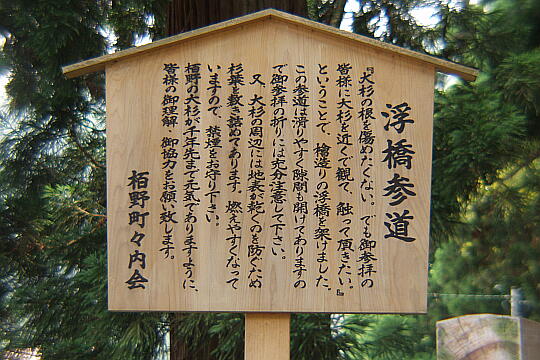 浮橋参道
『大杉の根を傷めたくない。でも御参拝の
皆様に大杉を近くで観て、触って頂きたい。』
ということで、檜造りの浮橋を架けました。
この参道は滑りやすく隙間も開けてありますの
で御参拝の折りには充分注意して下さい。
又、大杉の周辺には地表が乾くのを防ぐため
杉葉を敷き詰めてあります。燃えやすくなって
いますので、禁煙をお守り下さい。
栢野の大杉が千年先まで元気でありますように、
皆様の御理解・御協力をお願い致します。
栢野町々内会